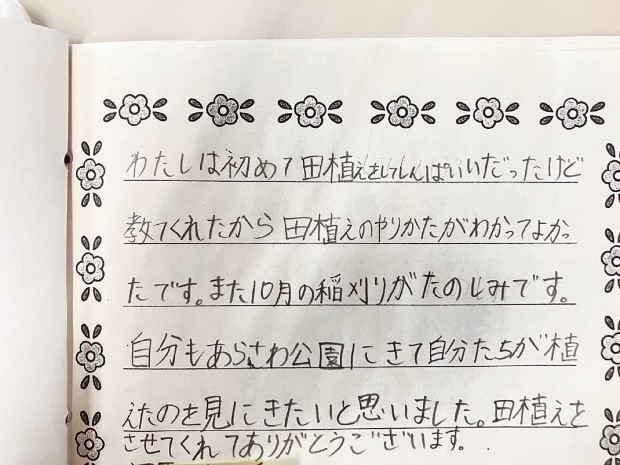 わたしは初めて田植えをしてしんぱいいだったけど
教てくれたから田植えのやりかたがわかってよかっ
たです。また10月の稲刈りがたのしみです。
自分もあらさわ公園にきて自分たちが植
えたのを見にきたいと思いました。田植えを
させてくれてありがとうございます。